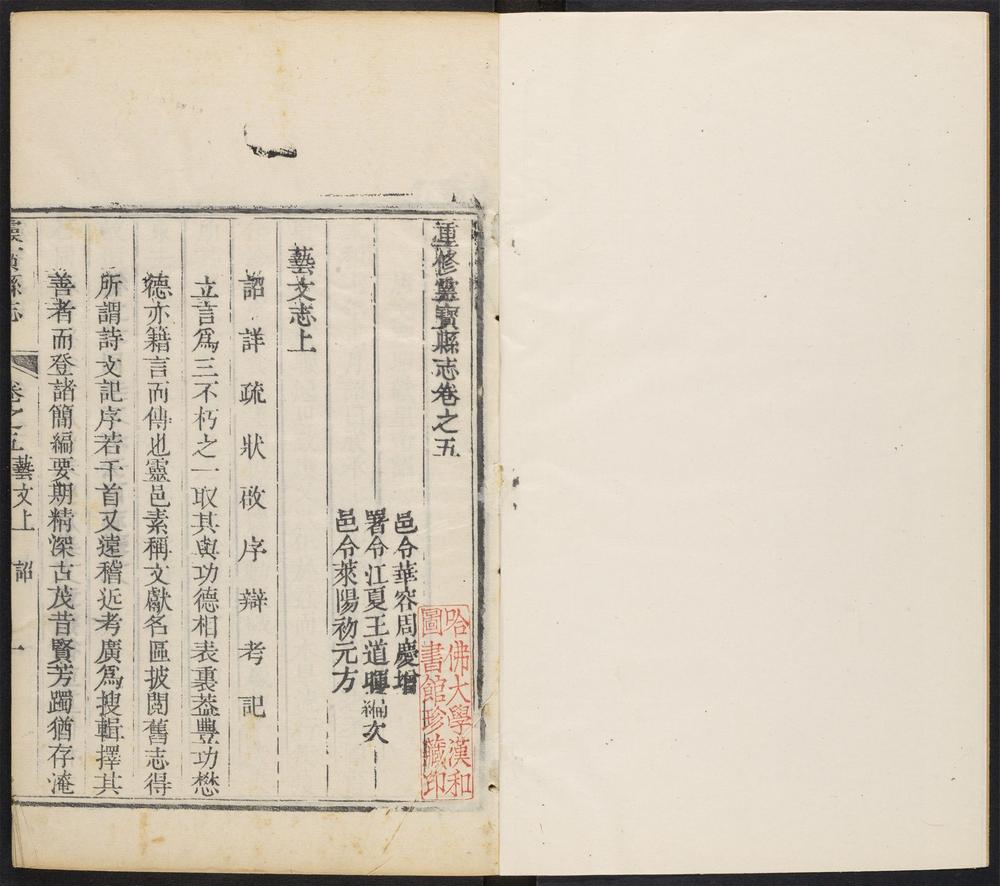 重修靈寶縣志卷之五
邑令華容周慶增
署令江夏王道曜編次
邑令萊陽初元方
藝文志上
詔詳疏狀啟序辯考記
立言爲三不朽之一取其與功德相表裏葢豐功懋
德亦籍言而傳也靈邑素稱文獻名區披閱舊志得
所謂詩文記序若干首又遠稽近考廣爲搜輯擇其
善者而登諸簡編要期精深古茂昔賢芳躅猶存淹
靈寶縣志 卷之五藝文上 詔 一
哈佛大學漢和
圖書館珍藏印